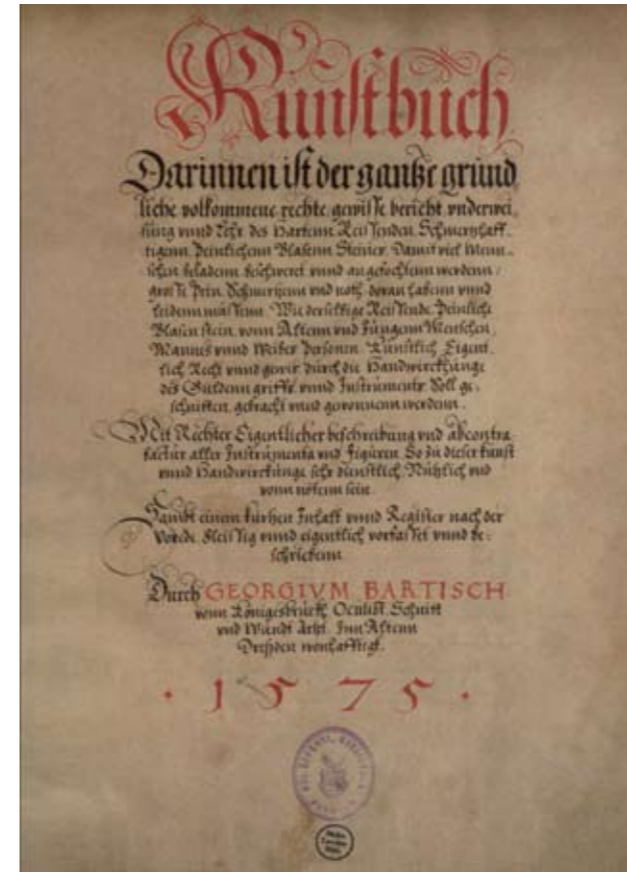 Kunstbuch
Darinnen ist der gantze gründ
liche volkommene rechte gewisse bericht vnderwei
sung vnnd Lehr des Hartenn Reissenden Schmertzhaff
tigenn Peinlichenn Blasenn Steines. Damit viel Menn
schen beladenn beschweret vnnd angefochtenn werdenn
grosse Pein Schmertzenn vnd noth doran habenn vnnd
leidenn müssenn. Wie derselbige Reissende Peinliche
Blasen stein vonn Altenn vnd Jungenn Menschen
Mannes vnnd Weibes Personen Künstlich Eigent
lich Recht vnnd gewis durch die Handwirckunge
des Güldenn griffs vnnd Instrumente Soll ge
schnitten gebracht vnnd gewonnenn werdenn.
Mit Rechter Eigentlicher beschreibung vnd abcontra
factur aller Instrumenta vnd figuren So zu dieser kunst
vnnd Handwirckunge sehr dienstlich Nützlich vnd
vonn nötenn sein
Sambt einem kürtzen Inhalt vnnd Register nach der
Vorede fleissig vnnd eigentlich vorfasset vnnd be
schriebenn
Durch GEORGIVM BARTISCH
vonn Königesbrück Oculist Schnitt
vnd Wundt Artzt Inn Altenn
Dreszden wonhafftigk.
· 1 5 7 5 ·